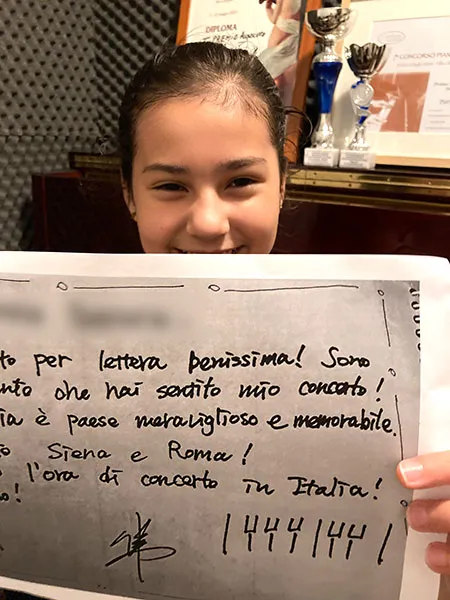 DIPLOMA
PREMIO
2° CONCORSO
to per lettera benissima! Sono
nto che hai sentito mio concerto!
ia è paese meraviglioso e memorabile.
o Siena e Roma!
l'ora di concerto in Italia!
o!